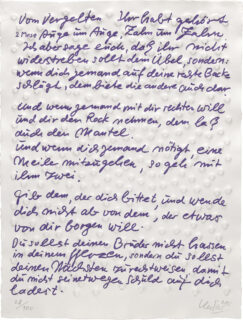 Vom Vergelten Ihr habt gehört
2 Mose Auge um Auge, Zahn um Zahn.
Ich aber sage euch, daß ihr nicht
widerstreben sollt dem Übel, sondern:
wenn dich jemand auf deine rechte Backe
schlägt, dem biete die andere auch dar.
Und wenn jemand mit dir rechten will
und dir den Rock nehmen, dem laß
auch den Mantel.
Und wenn dich jemand nötigt, eine
Meile mitzugehen, so geh mit
ihm zwei.
Gib dem, der dich bittet, und wende
dich nicht ab von dem, der etwas
von dir borgen will.
Du sollst deinen Bruder nicht hassen
in deinem Herzen, sondern du sollst
deinen Nächsten zurechtweisen damit
du nicht seinetwegen Schuld auf dich
ladest.
/100